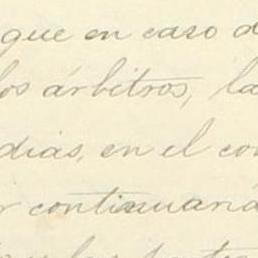 que en caso d
los árbitros, la
dias, en el con
r continuará